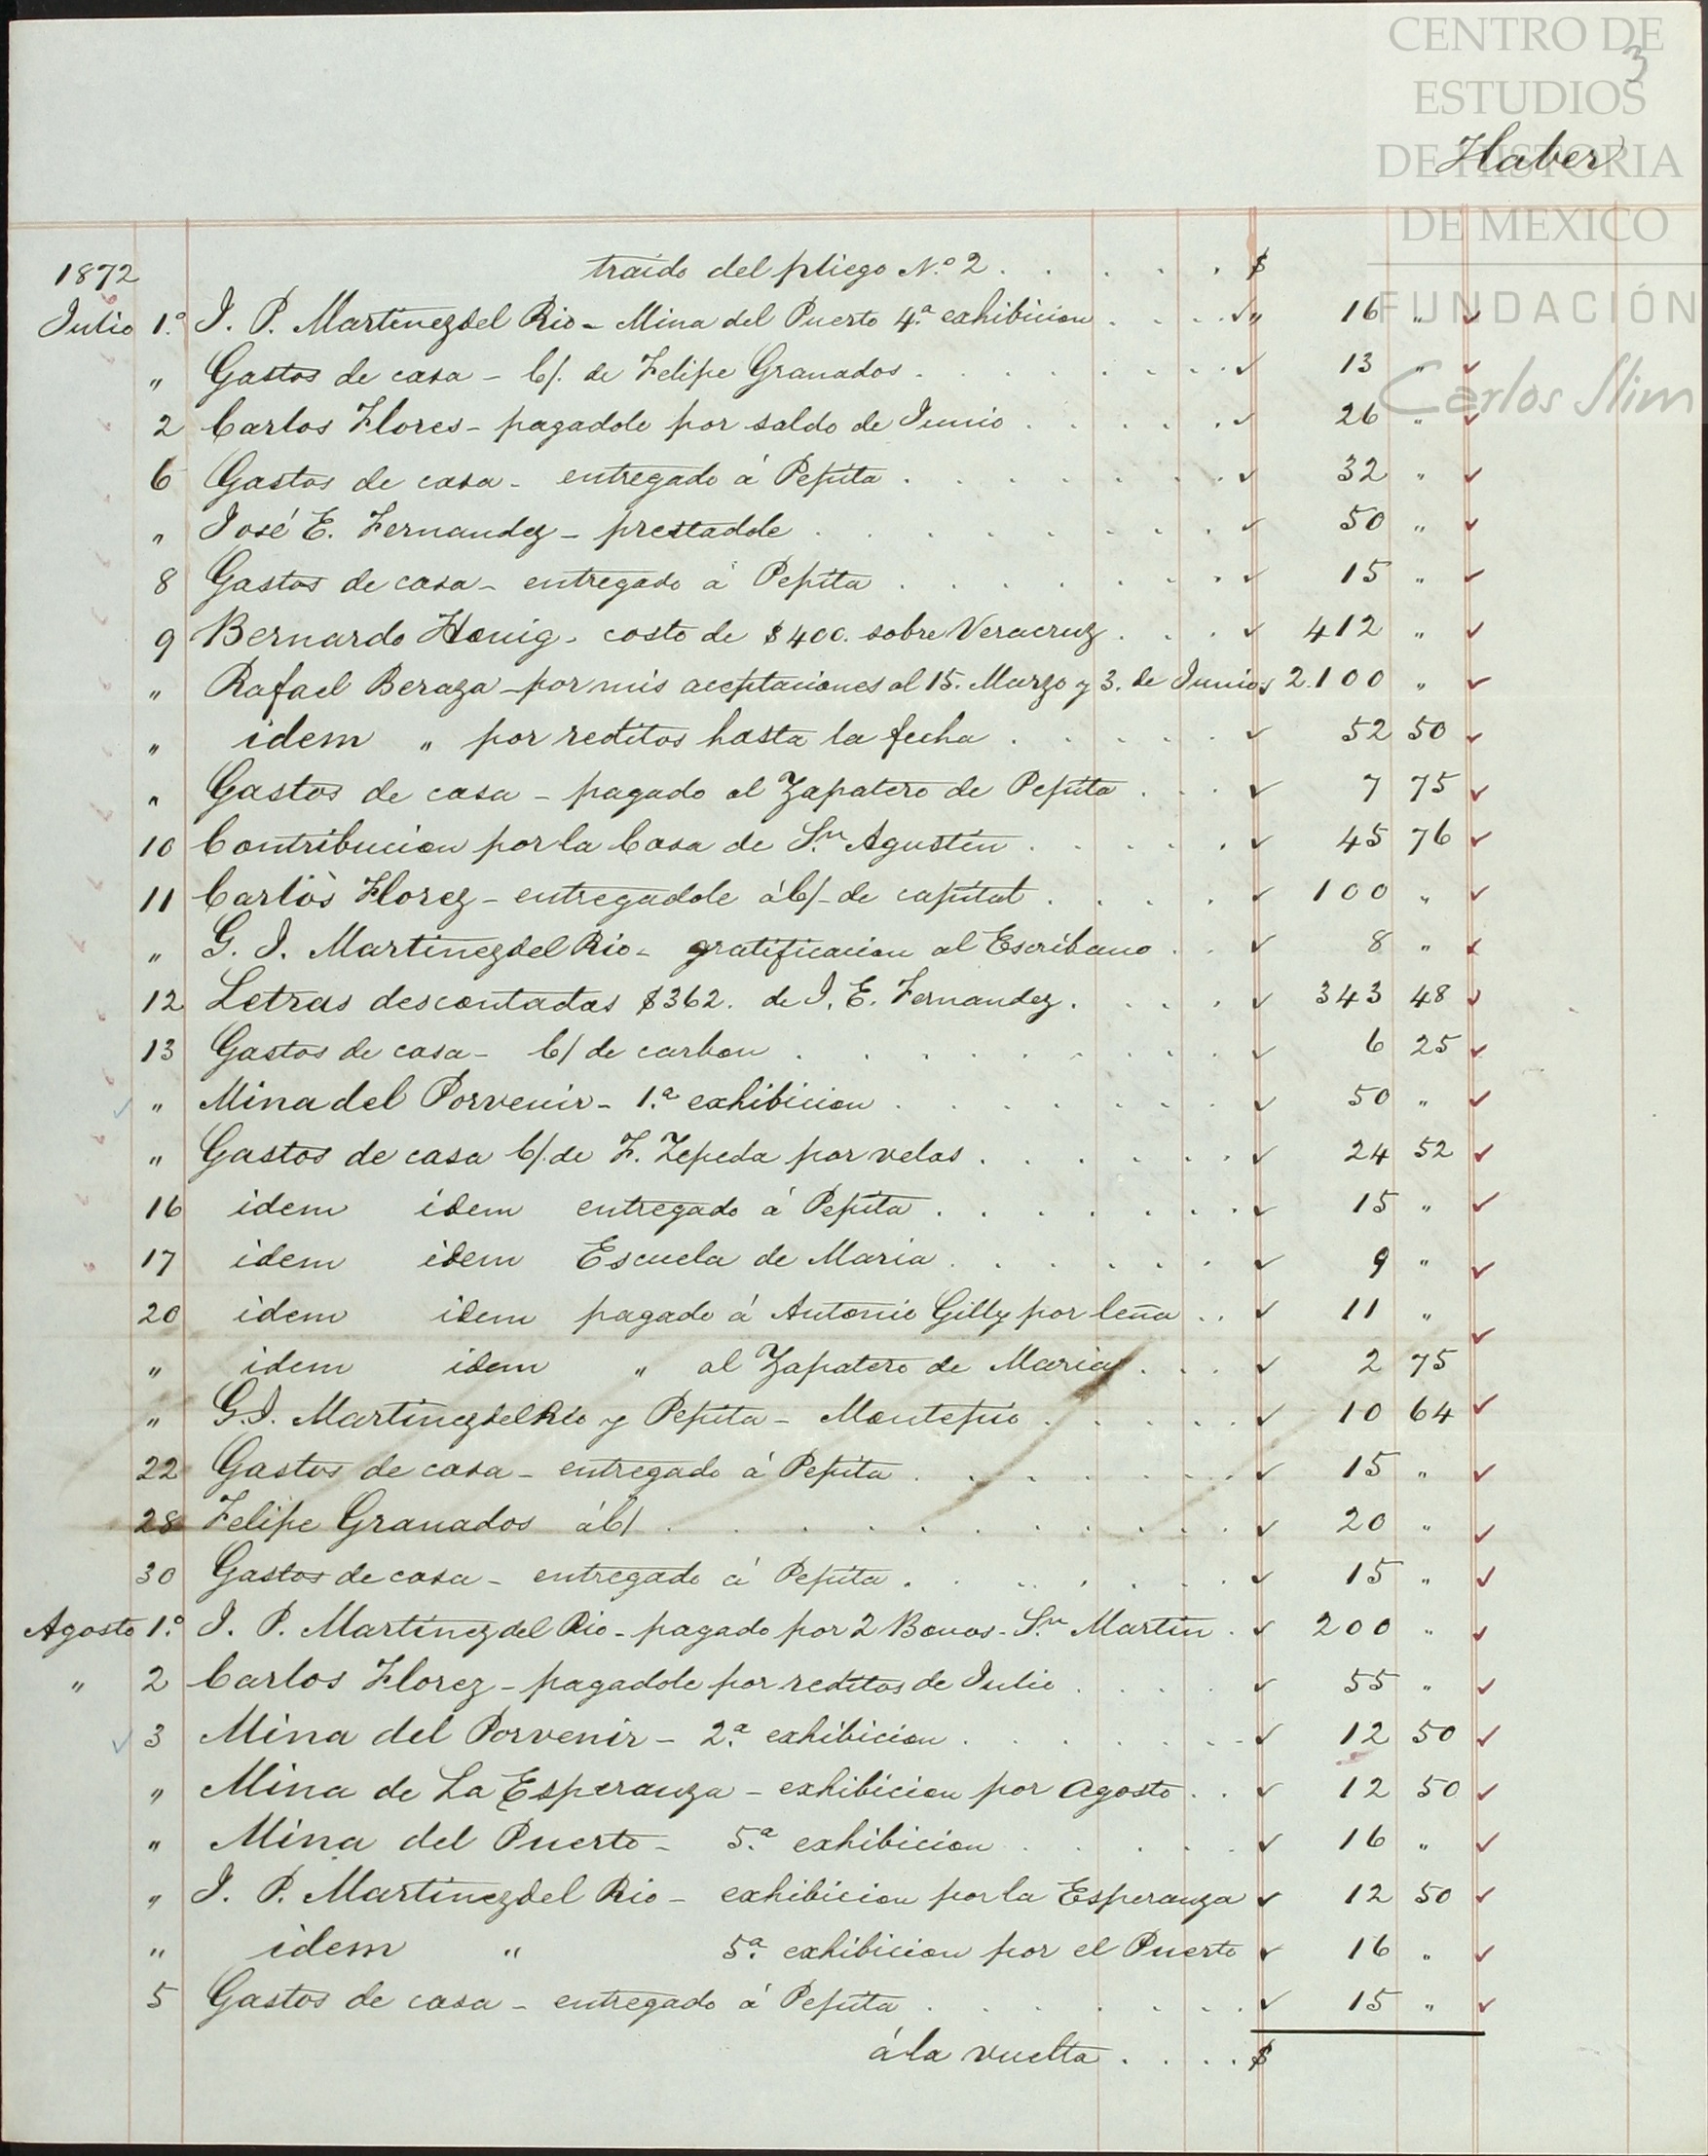 CENTRO DE
ESTUDIOS
DE HISTORIA
DE MEXICO
FUNDACIÓN
Carlos Slim
3
Haber
1872 traido del pliego N.º 2 . . . . . . $
Julio 1.º J. P. Martinez del Rio - Mina del Puerto 4.ª exhibicion . . . . " 16 "
" Gastos de casa - C/. de Felipe Granados . . . . . . . . 13 "
2 Carlos Flores - pagadole por saldo de Junio . . . . . . 26 "
6 Gastos de casa - entregado á Pepita . . . . . . . 32 "
" José E. Fernandez - prestadole . . . . . . . . 50 "
8 Gastos de casa - entregado á Pepita . . . . . . . 15 "
9 Bernardo Honig - costo de $400. sobre Veracruz . . . 412 "
" Rafael Beraza - por mis aceptaciones al 15. Marzo y 3. de Junio 2.100 "
" idem " por reditos hasta la fecha . . . . . . 52 50
" Gastos de casa - pagado al Zapatero de Pepita . . . 7 75
10 Contribucion por la Casa de S.n Agustin . . . . . 45 76
11 Carlos Florez - entregadole á C/ de capital . . . . 100 "
" G. J. Martinez del Rio - gratificacion al Escribano . . 8 "
12 Letras descontadas $362. de J. E. Fernandez . . . . 343 48
13 Gastos de casa - C/ de carbon . . . . . . . . . 6 25
" Mina del Porvenir - 1.ª exhibicion . . . . . . . 50 "
" Gastos de casa C/. de F. Zepeda por velas . . . . . . 24 52
16 idem idem entregado á Pepita . . . . . . . 15 "
17 idem idem Escuela de Maria . . . . . . 9 "
20 idem idem pagado á Antonio Gilly por leña . . 11 "
" idem idem " al Zapatero de Maria . . . 2 75
" G. J. Martinez del Rio y Pepita - Montepio . . . . . 10 64
22 Gastos de casa - entregado á Pepita . . . . . . . 15 "
28 Felipe Granados á C/ . . . . . . . . . . . 20 "
30 Gastos de casa - entregado á Pepita . . . . . . . 15 "
Agosto 1.º J. P. Martinez del Rio - pagado por 2 Bonos - S.n Martin . 200 "
" 2 Carlos Florez - pagadole por reditos de Julio . . . . 55 "
3 Mina del Porvenir - 2.ª exhibicion . . . . . . . 12 50
" Mina de La Esperanza - exhibicion por Agosto . . 12 50
" Mina del Puerto - 5.ª exhibicion . . . . . 16 "
" J. P. Martinez del Rio - exhibicion por la Esperanza 12 50
" idem " 5.ª exhibicion por el Puerto 16 "
5 Gastos de casa - entregado á Pepita . . . . . . . 15 "
á la vuelta . . . . $